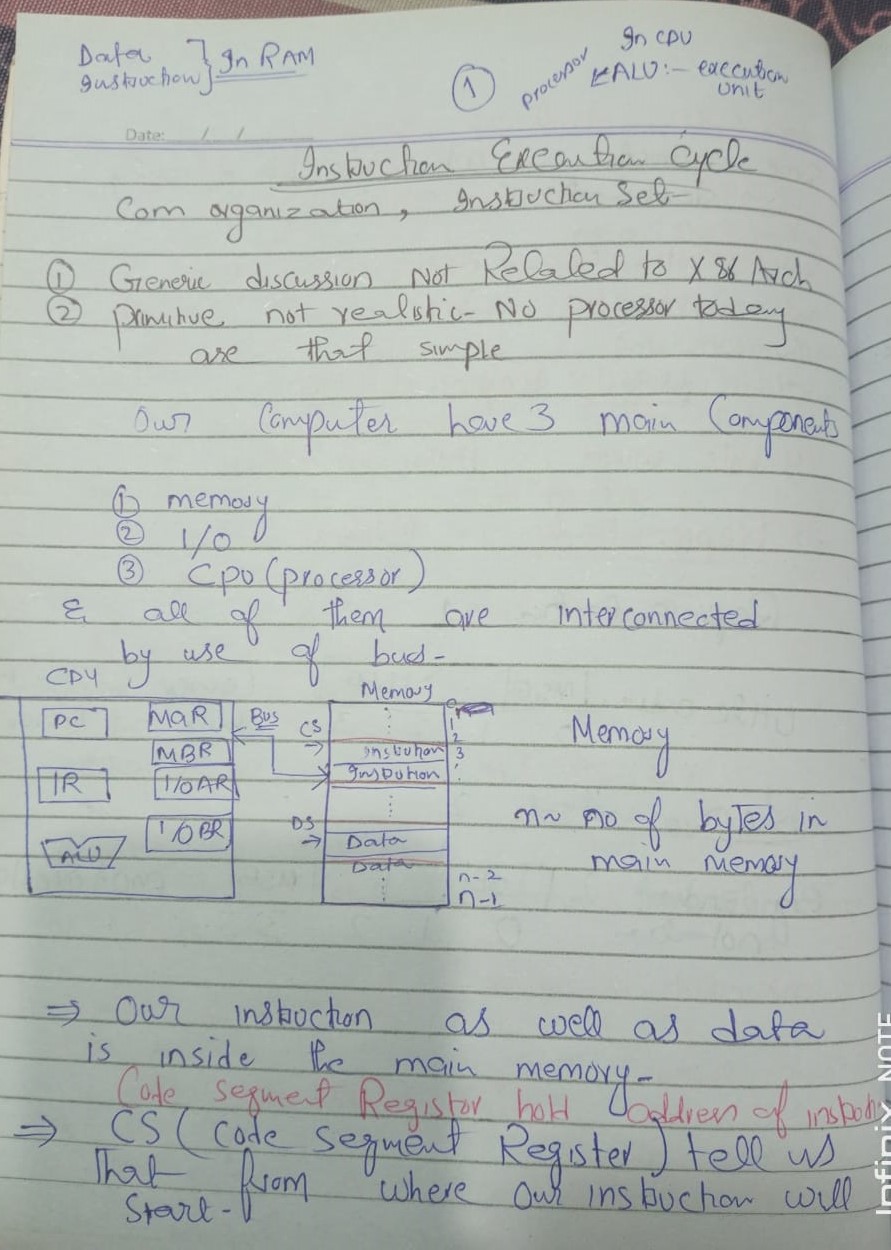 Data
Instruction } In RAM
①
In CPU
processor
ALU:- execution
unit
Date: / /
Instruction Execution Cycle
Com organization, Instruction Set-
① Generic discussion Not Related to X86 Arch
② primitive not realistic- No processor today
are that simple
Our Computer have 3 main Components
① memory
② I/O
③ CPU (processor)
& all of them are interconnected
by use of bus-
CPU
Memory
PC
MAR
Bus
CS
0
1
2
MBR
Instruction
3
IR
I/OAR
Instruction
Memory
I/OBR
DS
n~ no of bytes in
ALU
Data
main memory
Data
n-2
n-1
⇒ Our instruction as well as data
is inside the main memory-
Code segment Register hold address of inston
⇒ CS (Code Segment Register) tell us
that from where our instruction will
start-
Infinix NOTE